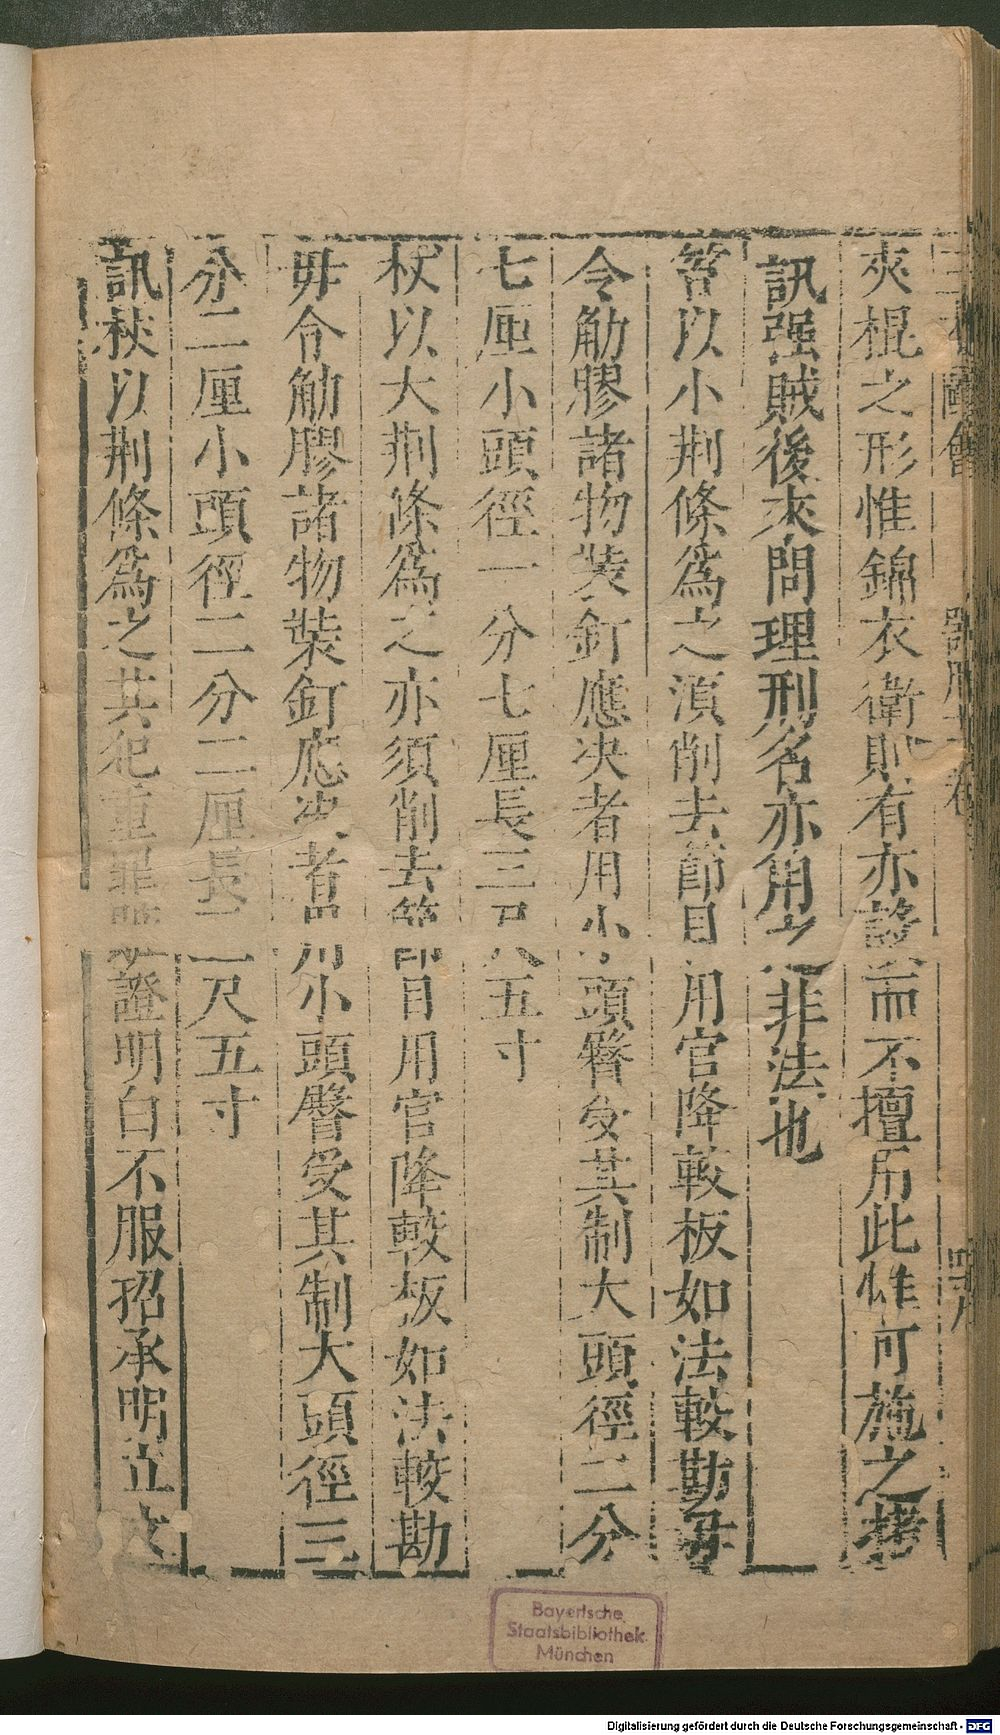 三才圖會 器用十二卷
夾棍之形惟錦衣衛則有亦設而不擅用此惟可施之拷
訊强賊後來問理刑名亦用之非法也
笞以小荆條爲之湏削去節目用官降較板如法較勘毋
令觔膠諸物裝釘應决者用小頭臀受其制大頭徑二分
七厘小頭徑一分七厘長三尺五寸
杖以大荆條爲之亦須削去節目用官降較板如法較勘
毋令觔膠諸物裝釘應决者用小頭臀受其制大頭徑三
分二厘小頭徑二分二厘長三尺五寸
訊杖以荆條爲之其犯重罪贓證明白不服招承明立文
Bayerische
Staatsbibliothek
München
Digitalisierung gefördert durch die Deutsche Forschungsgemeinschaft - DFG